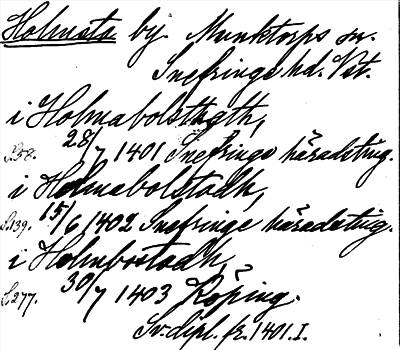 Holmsta by. Munktorps sn.
Snefringe hd. Vst.
i Holmabolsthgth,
S. 58. 28/7 1401 Snefringe häradsting.
i Holmabolstadh,
S. 139. 15/6 1402 Snefringe häradsting.
i Holmbostadh,
S. 277. 30/7 1403 Köping.
Sv. dipl. fr. 1401. I.